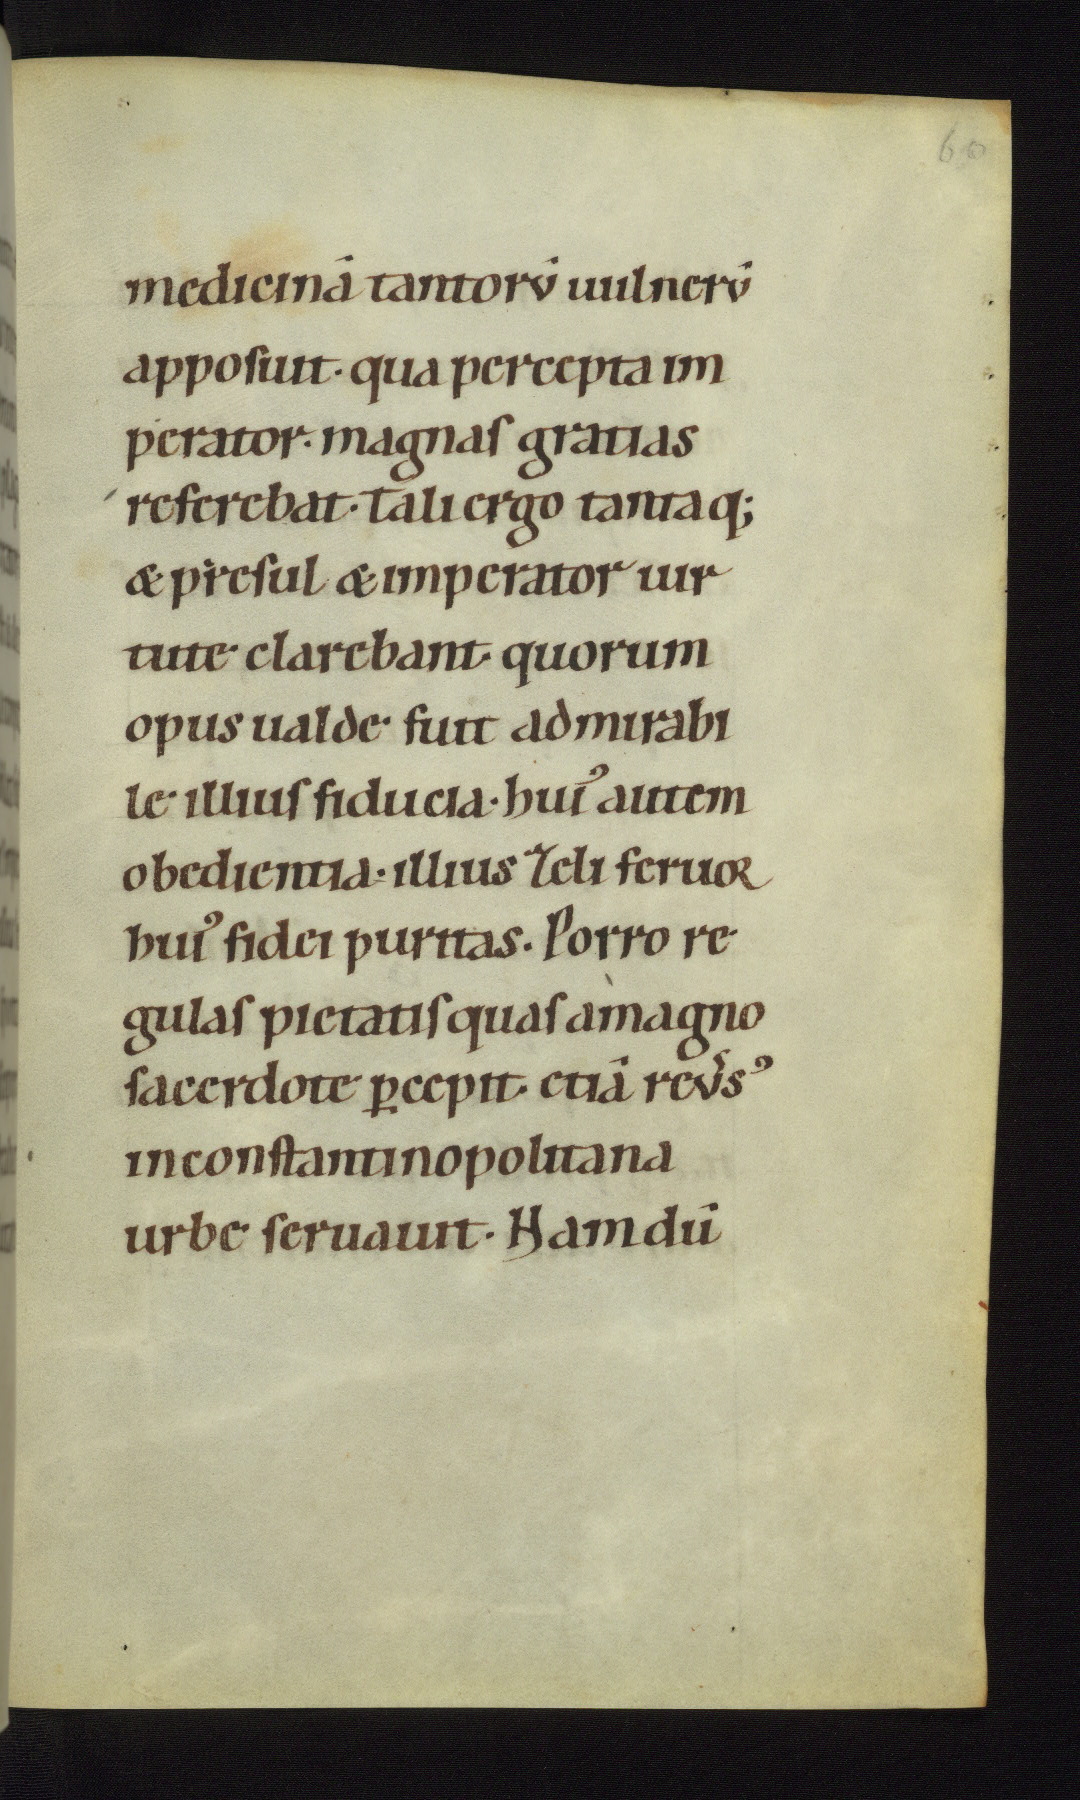 60
medicinā tantorū uulnerū
apposuit. qua percepta im
perator. magnas gratias
referebat. Tali ergo tantaq;
& presul & imperator uir
tute clarebant. quorum
opus ualde fuit admirabi
le illius fiducia. huiꝰ autem
obedientia. illius zeli feruor
huiꝰ fidei puritas. Porro re
gulas pietatis quas a magno
sacerdote ꝑcepit. etiā reūsꝰ
in constantinopolitana
urbe seruauit. Nam dū